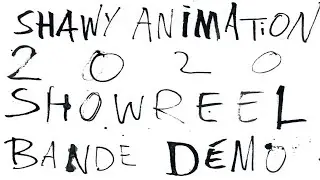 SHAWY ANiMATiON
2020
SHOWREEL
BANDE DEMO